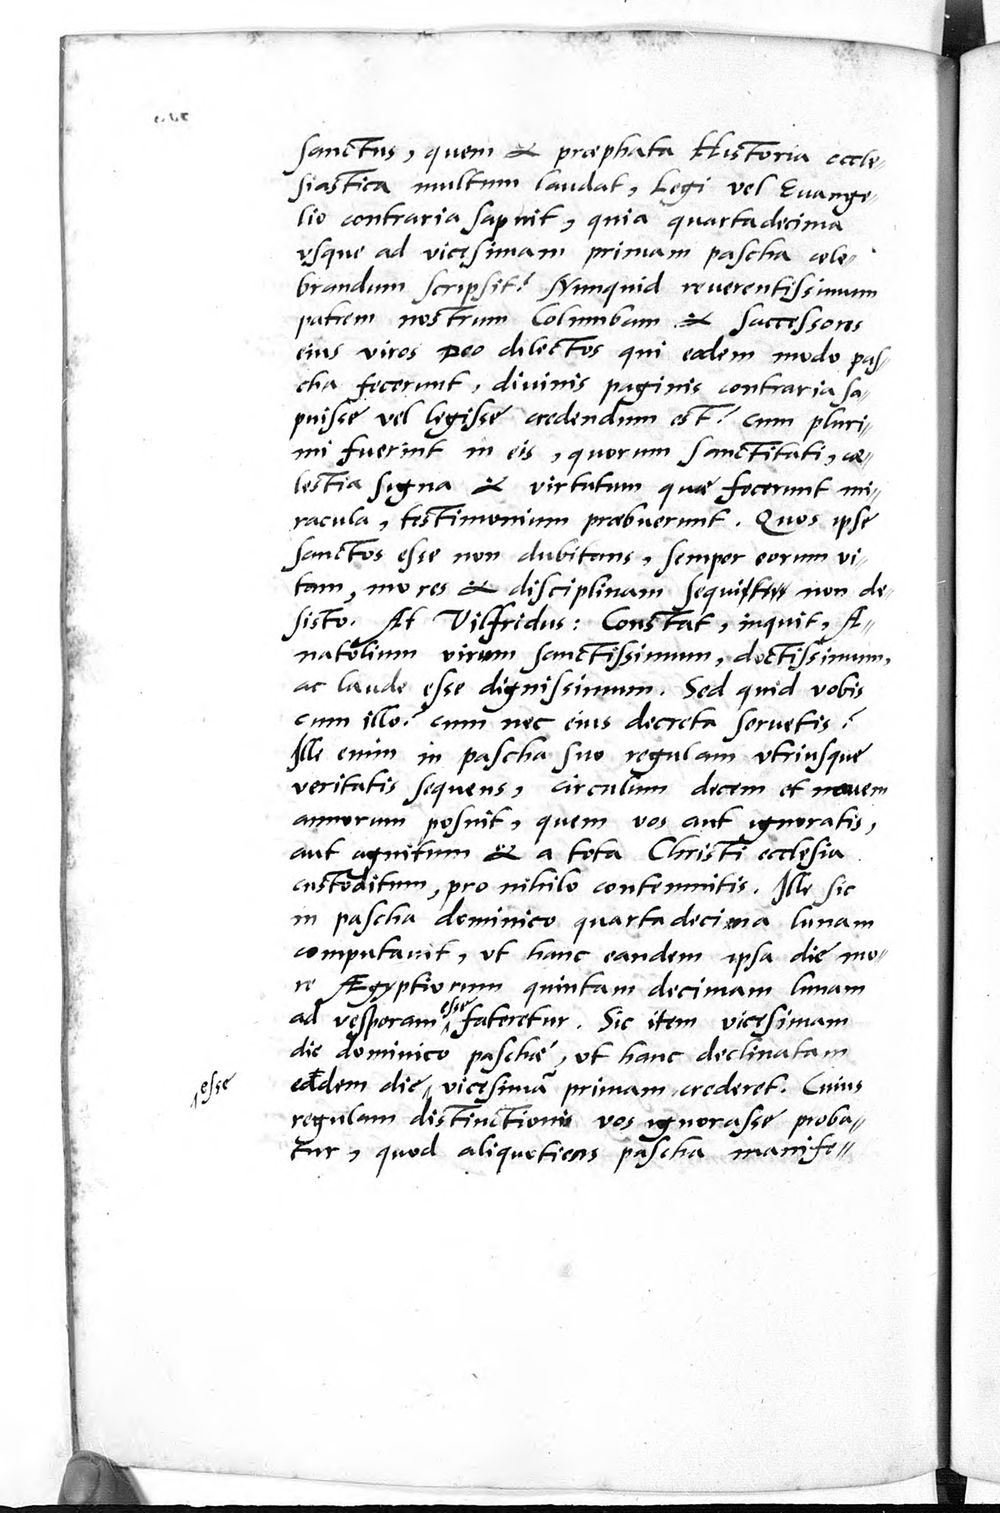 sanctus, quem & præphata Historia eccle-
siastica multum laudat, Legi vel Euange-
lio contraria sapuit, quia quartadecima
vsque ad vicęsimam primam pascha cele-
brandum scripsit? Numquid reuerentissimum
patrem nostrum Columbam & successores
eius viros Deo dilectos qui eodem modo pas-
cha fecerunt, diuinis paginis contraria sa-
puisse vel legisse credendum est? cum pluri-
mi fuerint in eis, quorum sanctitati, cæ-
lestia signa & virtutum quæ fecerunt mi-
racula, testimonium præbuerunt. Quos ipse
sanctos esse non dubitans, semper eorum vi-
tam, mores & disciplinam sequi non de-
sisto. At Vilfridus: Constat, inquit, A-
natolium virum sanctissimum, doctissimum,
ac laude esse dignissimum. Sed quid vobis
cum illo? cum nec eius decreta seruetis?
Ille enim in pascha suo regulam vtriusque
veritatis sequens, circulum decem et nouem
annorum posuit, quem vos aut ignoratis,
aut agnitum & a tota Christi ecclesia
custoditum, pro nihilo contemnitis. Ille sic
in pascha dominico quartadecima lunam
computauit, vt hanc eandem ipsa die mo-
re Ægyptiorum quintam decimam lunam
ad vesperam esse fateretur. Sic item vicęsimam
die dominico paschæ, vt hanc declinatam
esse eadem die, vicęsimã primam crederet. Cuius
regulam distinctionis vos ignorasse proba-
tur, quod aliquoties pascha manife-